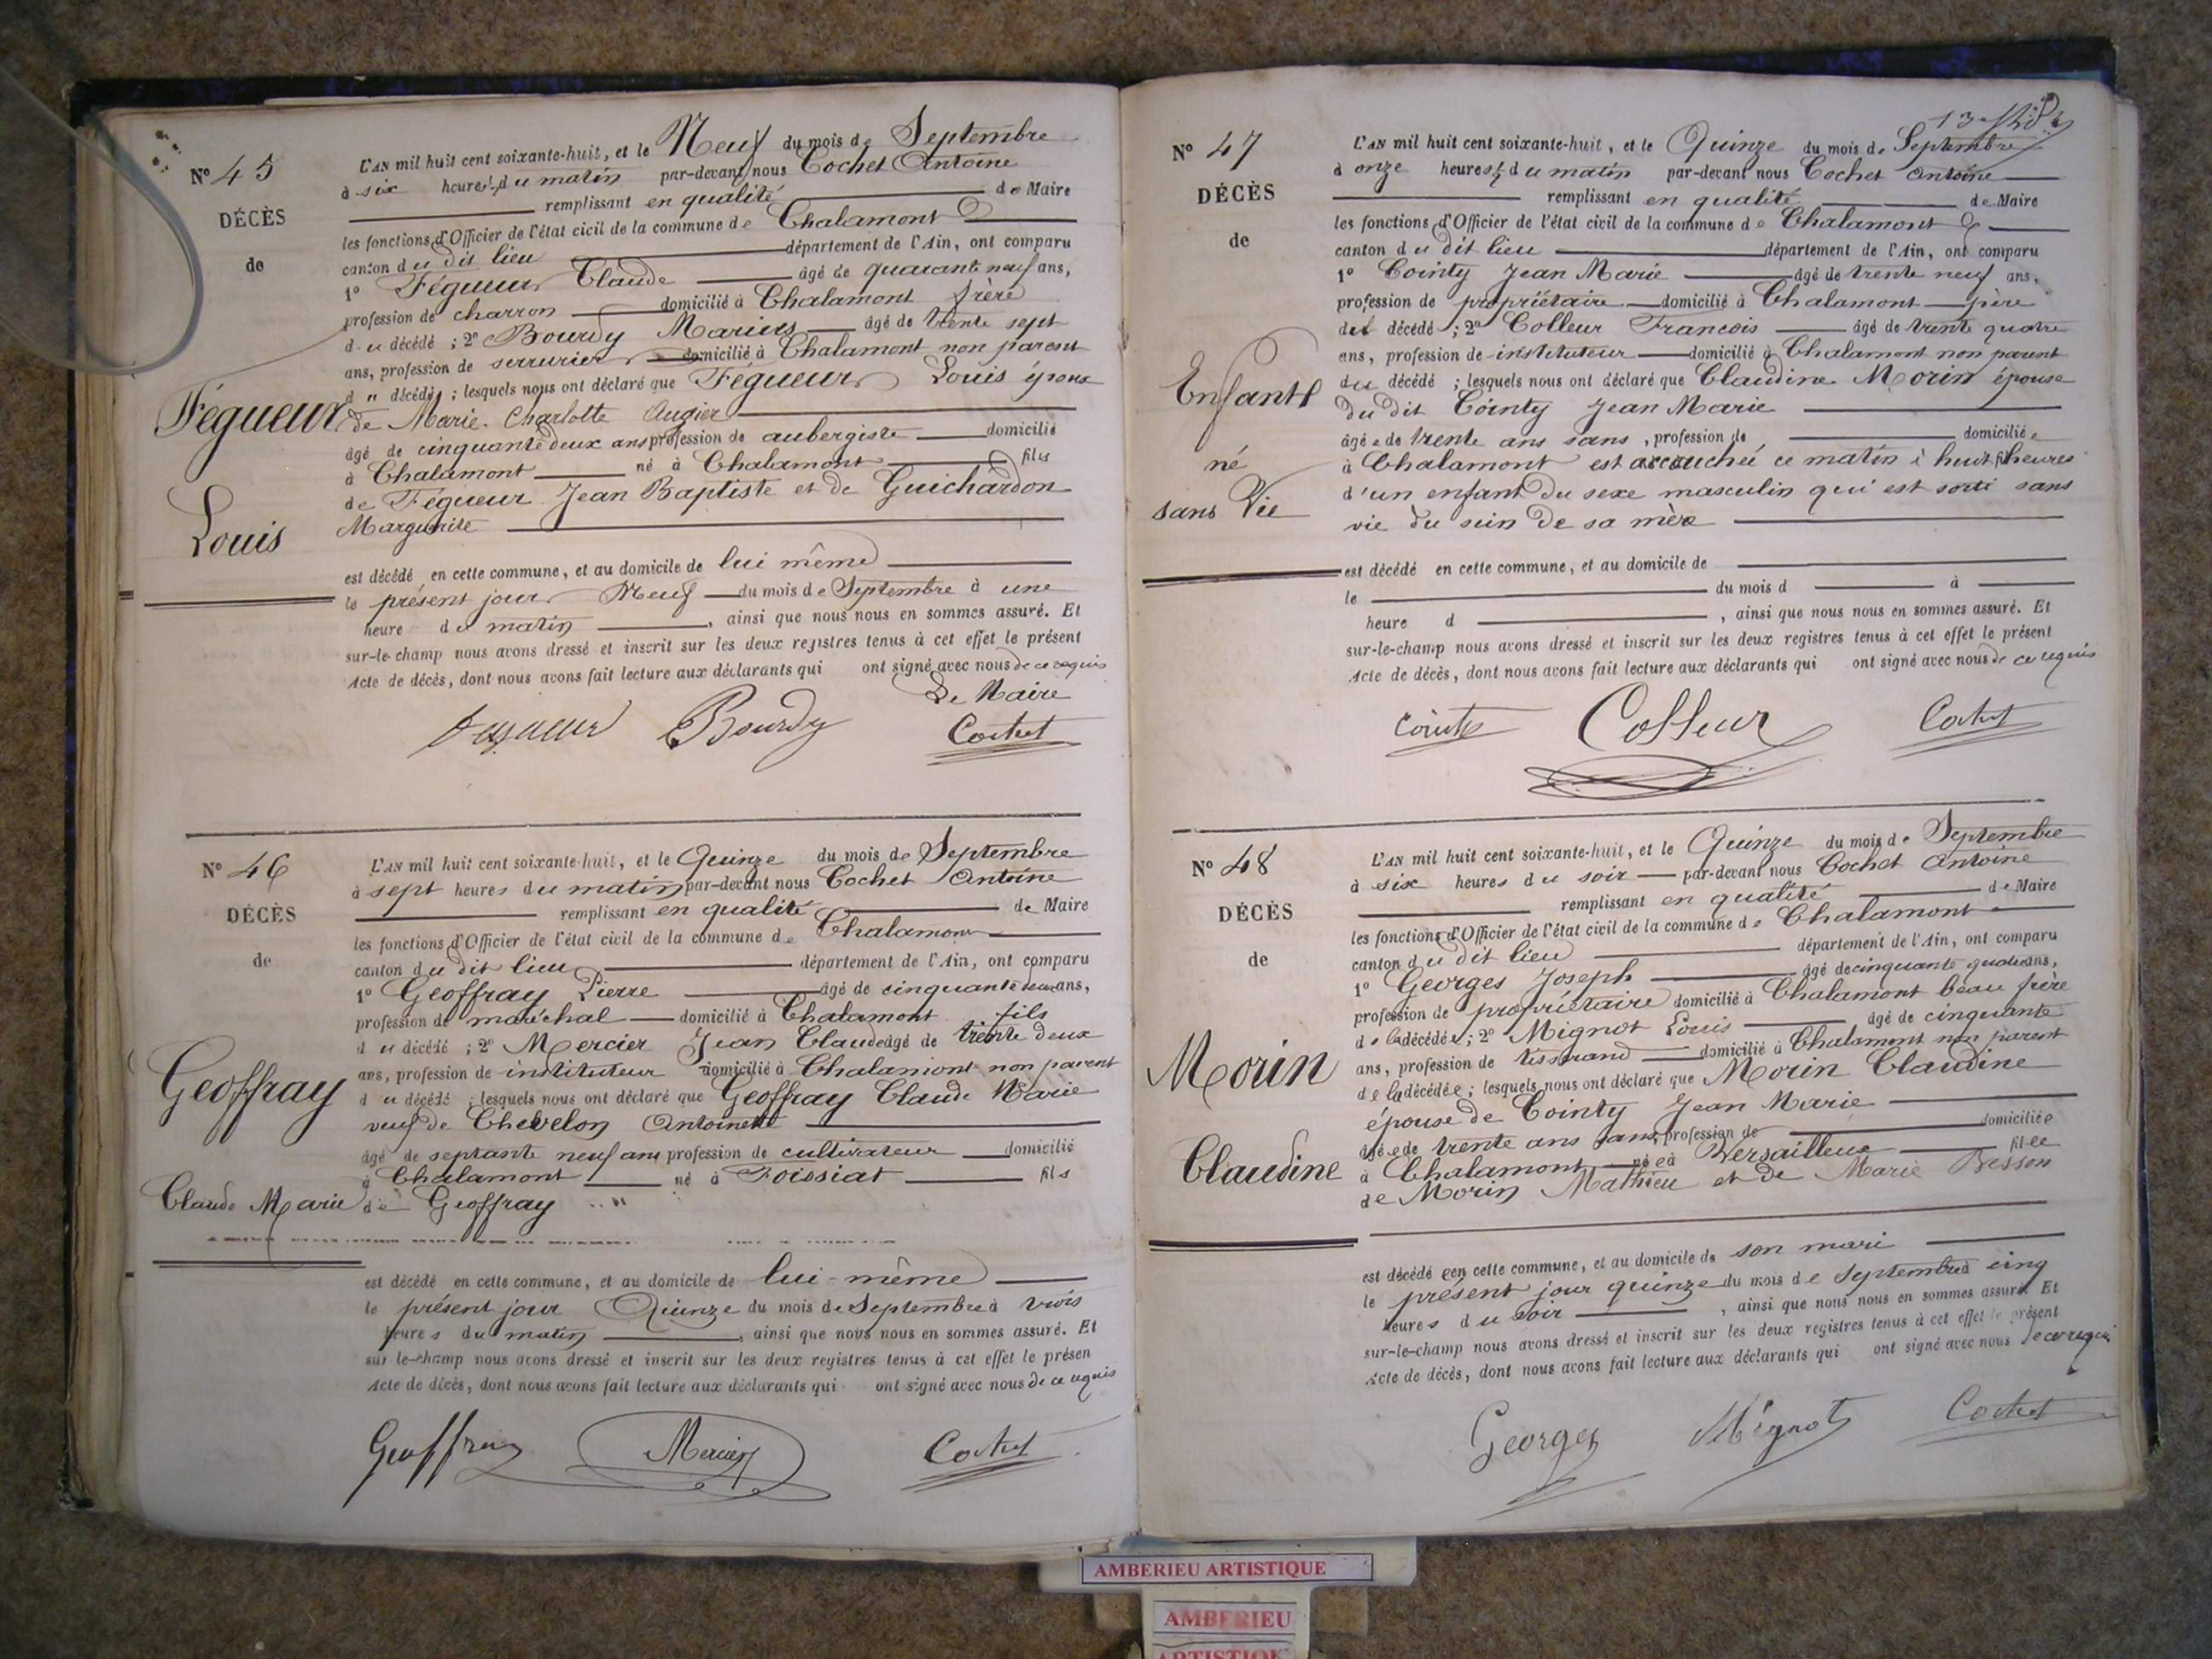 N° 45
DÉCÈS
de
Fégueur
Louis
L'AN mil huit cent soixante-huit, et le Neuf du mois de Septembre
à six heures ½ du matin par-devant nous Cochet Antoine
remplissant en qualité de Maire
les fonctions d'Officier de l'état civil de la commune de Chalamont
canton du dit lieu département de l'Ain, ont comparu
1° Fégueur Claude âgé de quarant neuf ans,
profession de charron domicilié à Chalamont frère
du décédé ; 2° Bourdy Marius âgé de trente sept
ans, profession de serrurier domicilié à Chalamont non parent
du décédé ; lesquels nous ont déclaré que Fégueur Louis époux
de Marie Charlotte Augier
âgé de cinquante deux ans profession de aubergiste domicilié
à Chalamont né à Chalamont fils
de Fégueur Jean Baptiste et de Guichardon
Marguerite
est décédé en cette commune, et au domicile de lui même
le présent jour Neuf du mois de Septembre à une
heure du matin , ainsi que nous nous en sommes assuré. Et
sur-le-champ nous avons dressé et inscrit sur les deux registres tenus à cet effet le présent
Acte de décès, dont nous avons fait lecture aux déclarants qui ont signé avec nous de ce requis
Le Maire
Fegueur Bourdy Cochet
N° 46
DÉCÈS
de
Geoffray
Claude Marie
L'AN mil huit cent soixante-huit, et le Quinze du mois de Septembre
à sept heures du matin par-devant nous Cochet Antoine
remplissant en qualité de Maire
les fonctions d'Officier de l'état civil de la commune de Chalamont
canton du dit lieu département de l'Ain, ont comparu
1° Geoffray Pierre âgé de cinquante deux ans,
profession de maréchal domicilié à Chalamont fils
du décédé ; 2° Mercier Jean Claude âgé de trente deux
ans, profession de instituteur domicilié à Chalamont non parent
du décédé ; lesquels nous ont déclaré que Geoffray Claude Marie
veuf de Chevelon Antoinette
âgé de septante neuf ans profession de cultivateur domicilié
à Chalamont né à Foissiat fils
de Geoffray
est décédé en cette commune, et au domicile de lui-même
le présent jour Quinze du mois de Septembre à trois
heures du matin , ainsi que nous nous en sommes assuré. Et
sur le-champ nous avons dressé et inscrit sur les deux registres tenus à cet effet le présen
Acte de décès, dont nous avons fait lecture aux déclarants qui ont signé avec nous de ce requis
Geoffray Mercier Cochet
N° 47
DÉCÈS
de
Enfant
né
sans Vie
L'AN mil huit cent soixante-huit, et le Quinze du mois de Septembre
à onze heures ½ du matin par-devant nous Cochet Antoine
remplissant en qualité de Maire
les fonctions d'Officier de l'état civil de la commune de Chalamont
canton du dit lieu département de l'Ain, ont comparu
1° Cointy Jean Marie âgé de trente neuf ans,
profession de propriétaire domicilié à Chalamont père
du décédé ; 2° Colleur Francois âgé de trente quatre
ans, profession de instituteur domicilié à Chalamont non parent
du décédé ; lesquels nous ont déclaré que Claudine Morin épouse
du dit Cointy Jean Marie
âgée de trente ans sans, profession de domiciliée
à Chalamont est accouchée ce matin à huit heures
d'un enfant du sexe masculin qui est sorti sans
vie du sein de sa mère
est décédé en cette commune, et au domicile de
le du mois d à
heure d , ainsi que nous nous en sommes assuré. Et
sur-le-champ nous avons dressé et inscrit sur les deux registres tenus à cet effet le présent
Acte de décès, dont nous avons fait lecture aux déclarants qui ont signé avec nous de ce requis
Cointy Colleur Cochet
N° 48
DÉCÈS
de
Morin
Claudine
L'AN mil huit cent soixante-huit, et le Quinze du mois de Septembre
à six heures du soir par-devant nous Cochet Antoine
remplissant en qualité de Maire
les fonctions d'Officier de l'état civil de la commune de Chalamont
canton du dit lieu département de l'Ain, ont comparu
1° Georges Joseph âgé de cinquante quatre ans,
profession de propriétaire domicilié à Chalamont beau frère
de la décédée ; 2° Mignot Louis âgé de cinquante
ans, profession de tisserand domicilié à Chalamont non parent
de la décédée ; lesquels nous ont déclaré que Morin Claudine
épouse de Cointy Jean Marie
âgée de trente ans sans profession de domiciliée
à Chalamont née à Versailleux fille
de Morin Mathieu et de Marie Besson
est décédée en cette commune, et au domicile de son mari
le présent jour quinze du mois de Septembre à cinq
heures du soir , ainsi que nous nous en sommes assuré. Et
sur-le-champ nous avons dressé et inscrit sur les deux registres tenus à cet effet le présent
Acte de décès, dont nous avons fait lecture aux déclarants qui ont signé avec nous de ce requis
Georges Mignot Cochet
AMBERIEU ARTISTIQUE
AMBERIEU
ARTISTIQUE